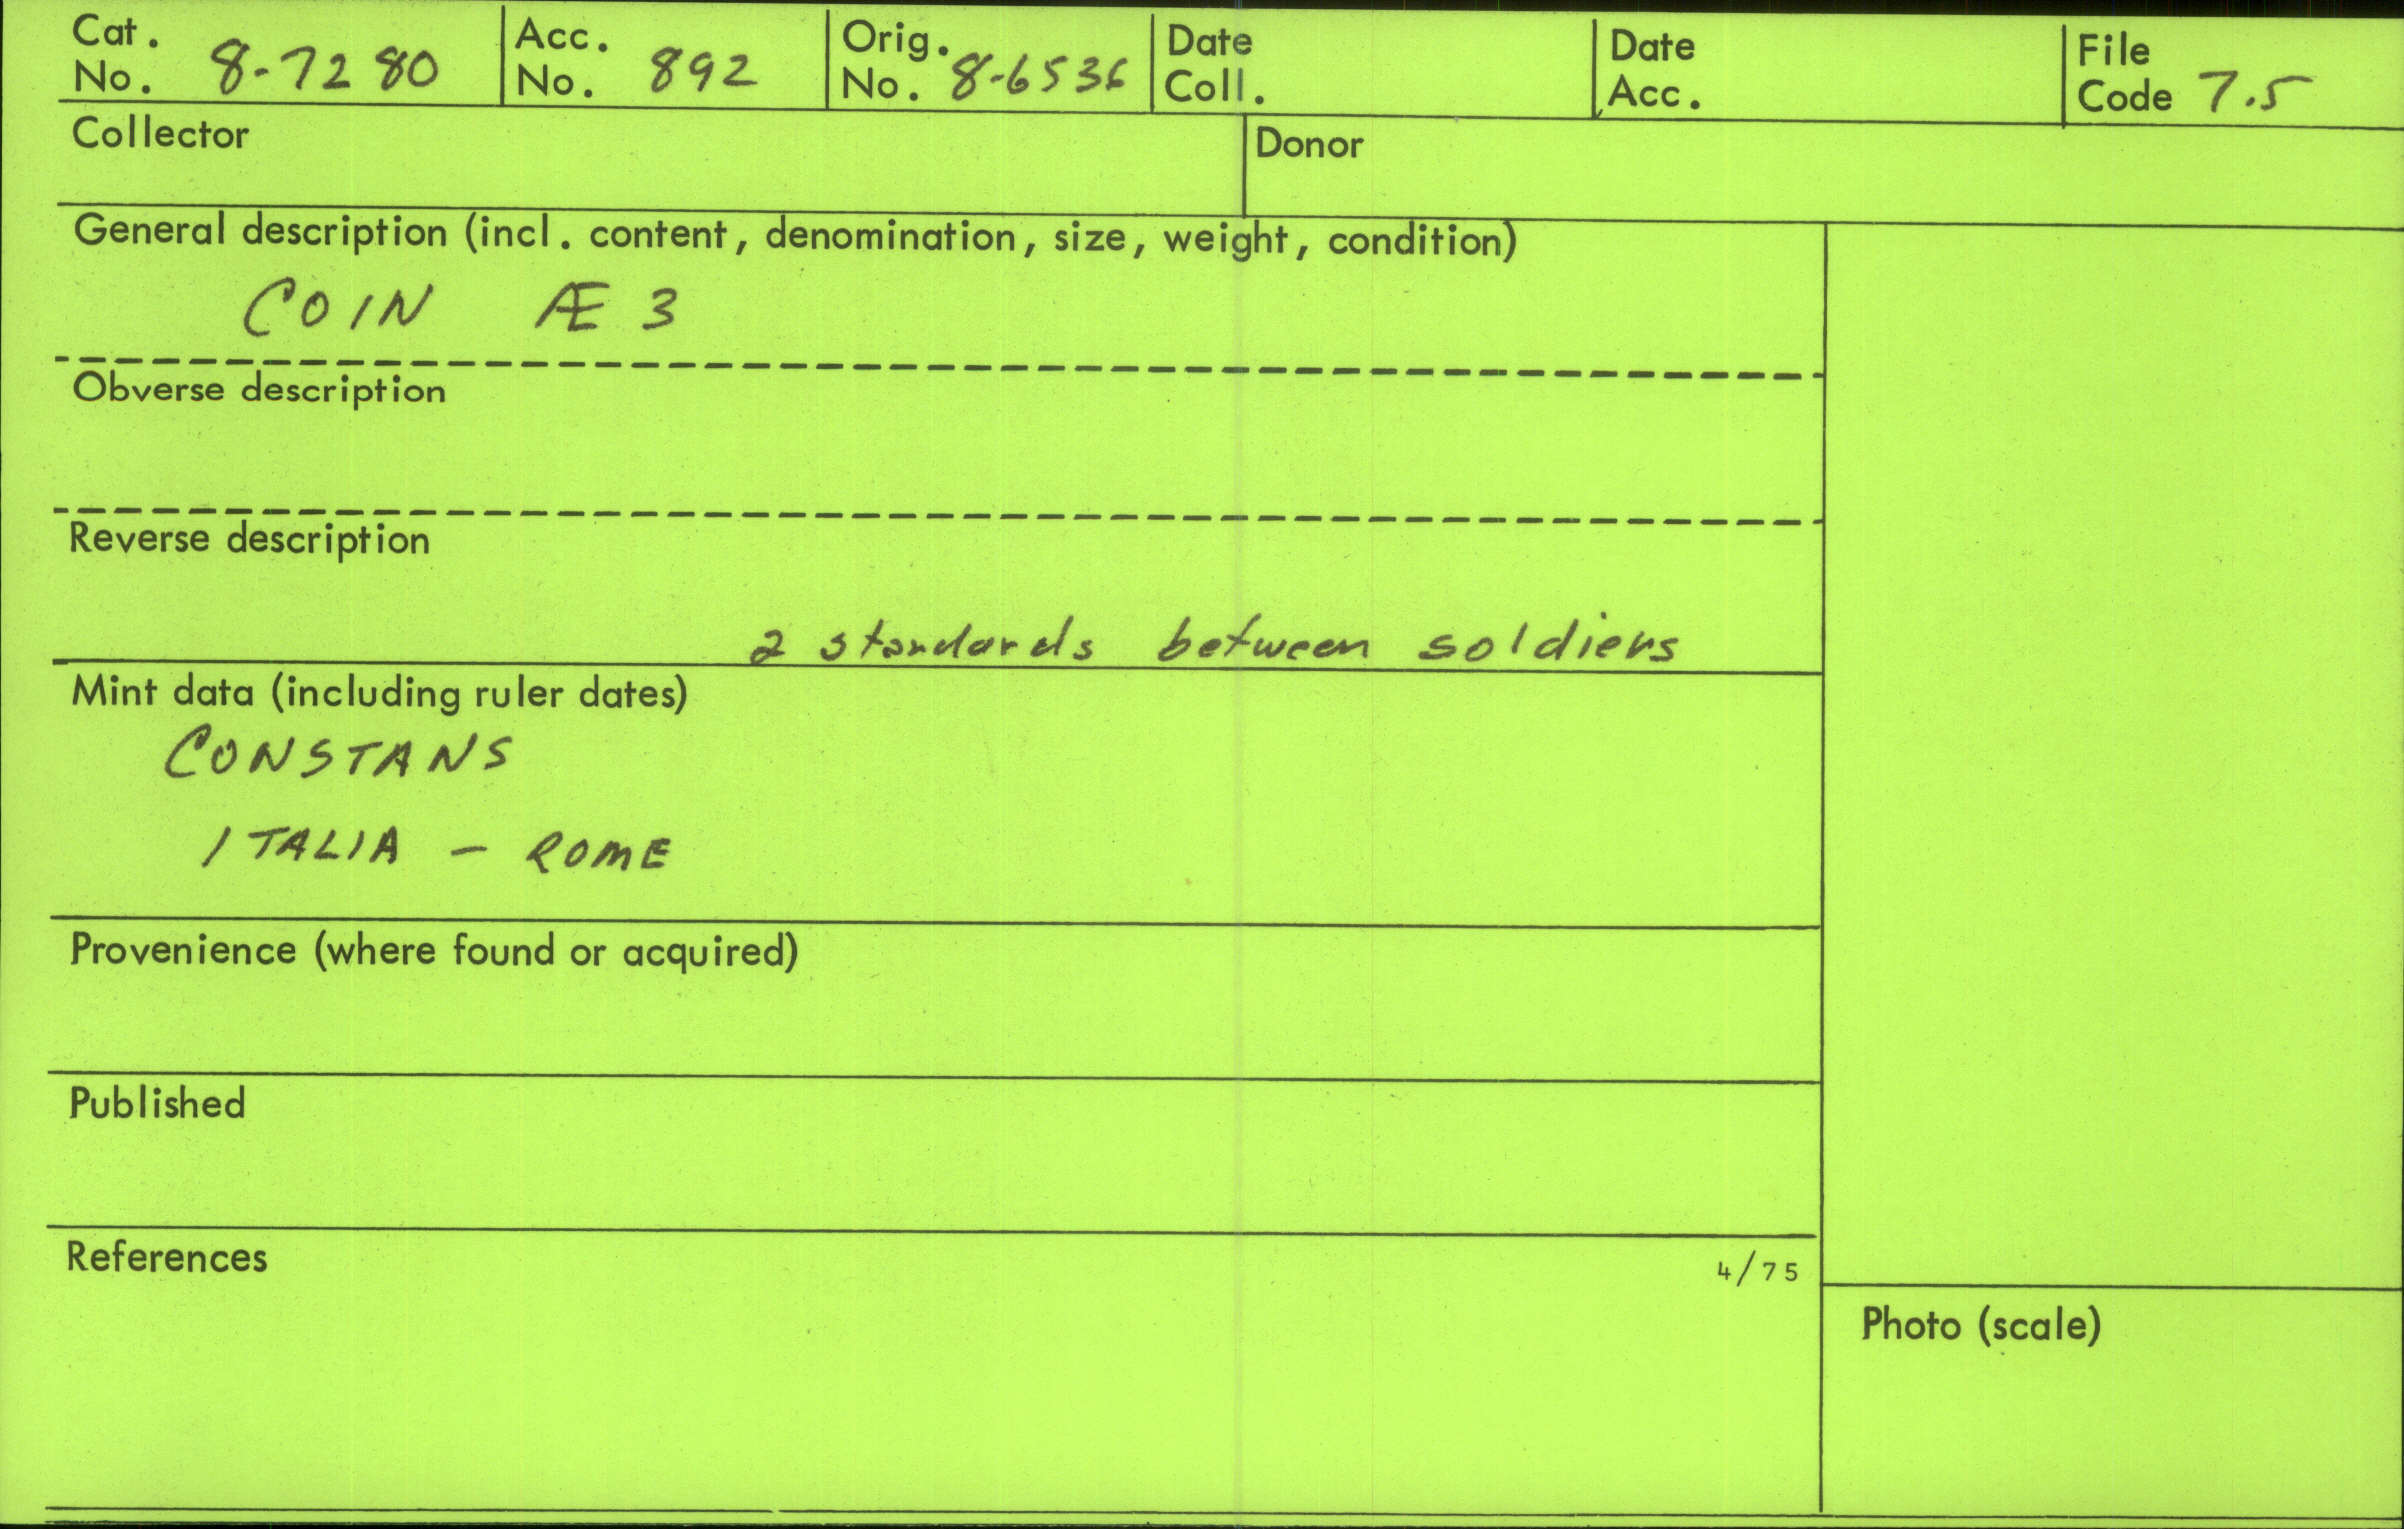 Cat. No. 8-7280 Acc. No. 892 Orig. No. 8-6536 Date Coll. Date Acc. File Code 7.5
Collector Donor
General description (incl. content, denomination, size, weight, condition)
COIN Æ 3
Obverse description
Reverse description
2 standards between soldiers
Mint data (including ruler dates)
CONSTANS
ITALIA - ROME
Provenience (where found or acquired)
Published
References 4/75
Photo (scale)